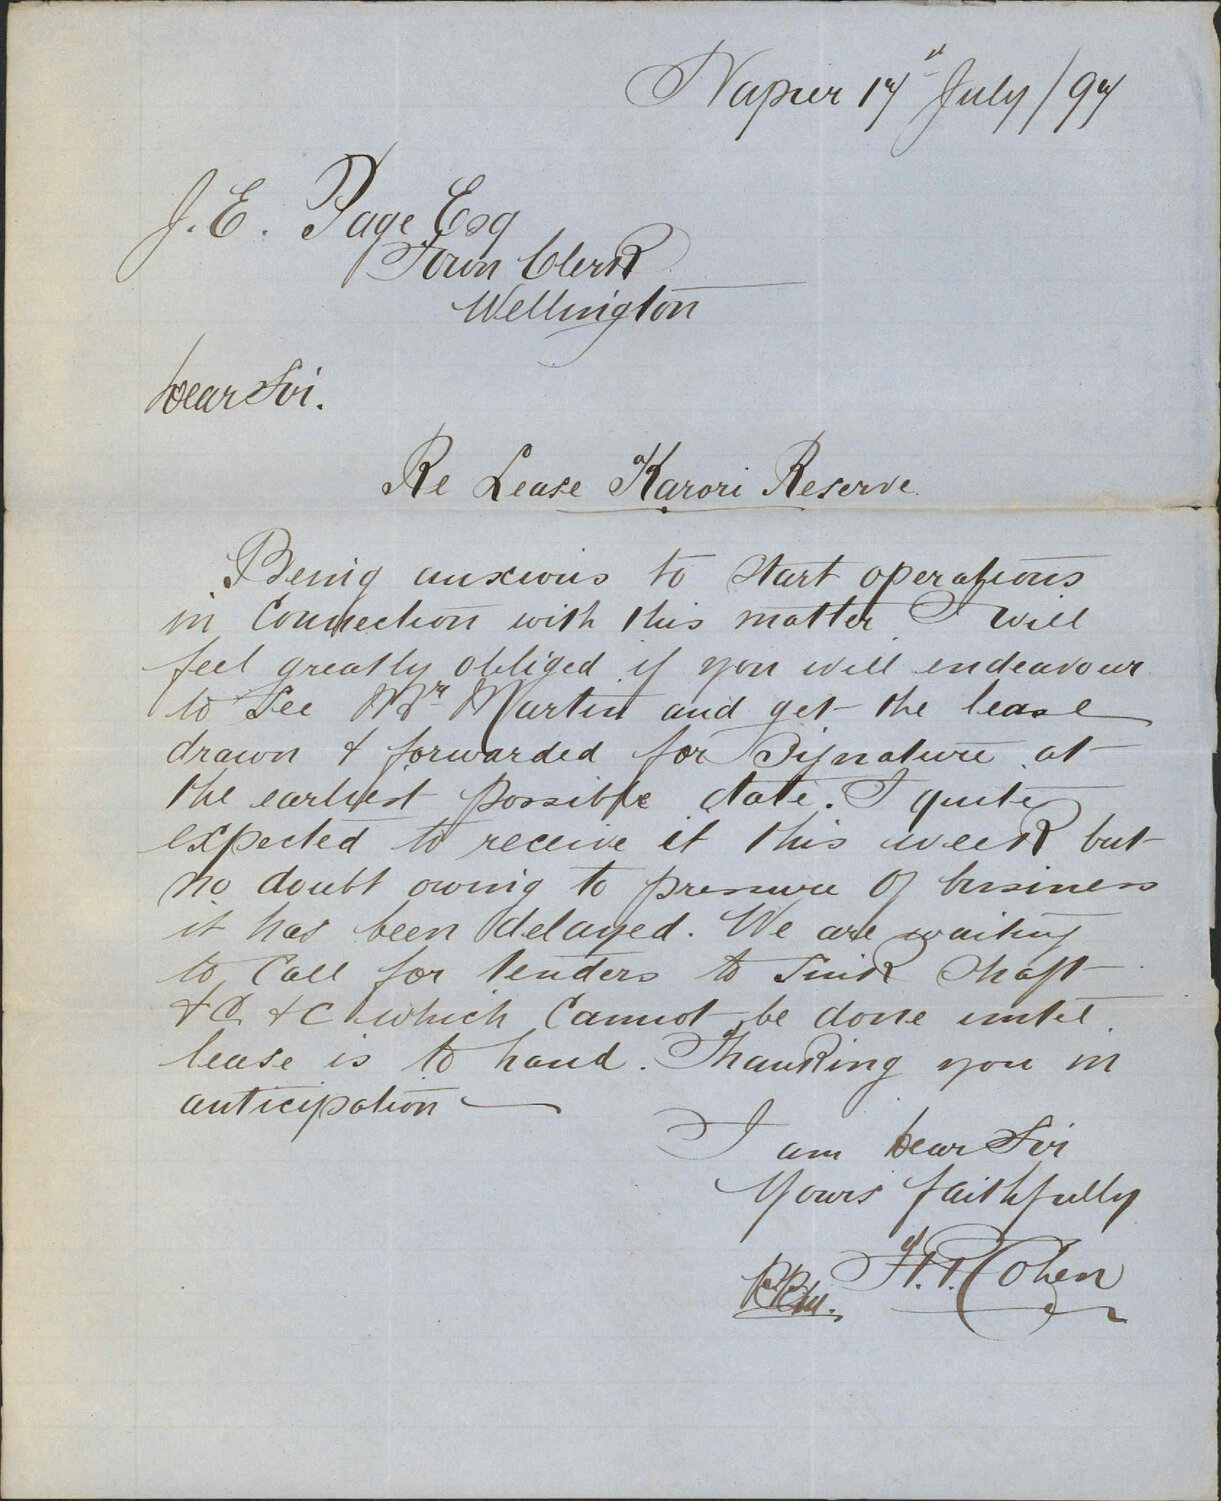 Napier 17th July /97
J. E. Page Esq
Town Clerk
Wellington
Dear Sir.
Re Lease Karori Reserve.
Being anxious to Start operations
in Connection with this matter I will
feel greatly obliged if you will endeavour
to See Mr Martin and get the lease
drawn & forwarded for Signature at
the earliest possible date. I quite
expected to receive it this week but
no doubt owing to pressure of business
it has been delayed. We are waiting
to Call for tenders to Sink Shaft
&C &C which Cannot be done until
lease is to hand. Thanking you in
anticipation
I am Dear Sir
Yours faithfully
Cohen